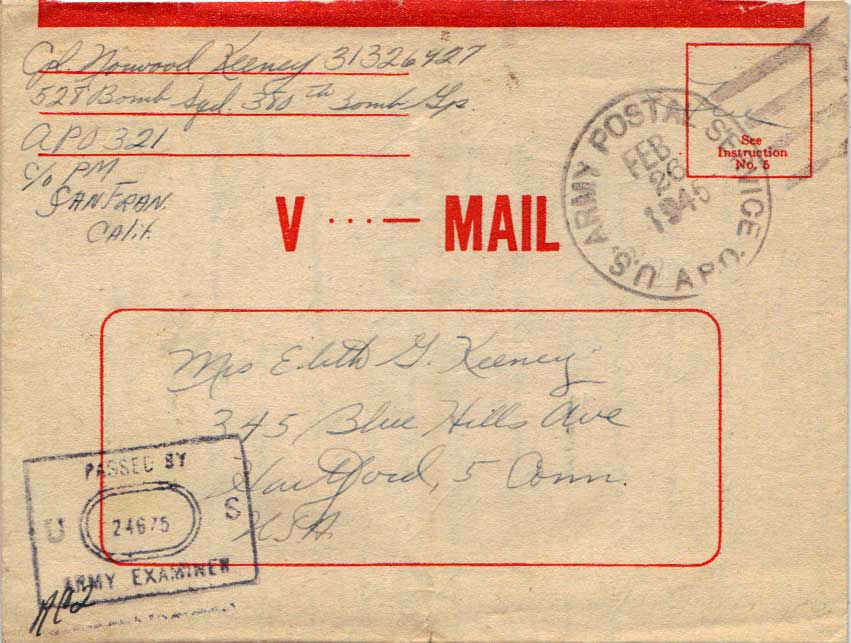 Cpl. Norwood Keeney 31326427
528 Bomb Sqd. 380th Bomb Gp.
APO 321
c/o PM
SAN FRAN.
Calif.
Free
See
Instruction
No. 5
U.S. ARMY POSTAL SERVICE A.P.O.
FEB
26
1945
V ...— MAIL
Mrs Edith G. Keeney
345 Blue Hills Ave
Hartford, 5 Conn.
USA
PASSED BY
U 24675 S
ARMY EXAMINER